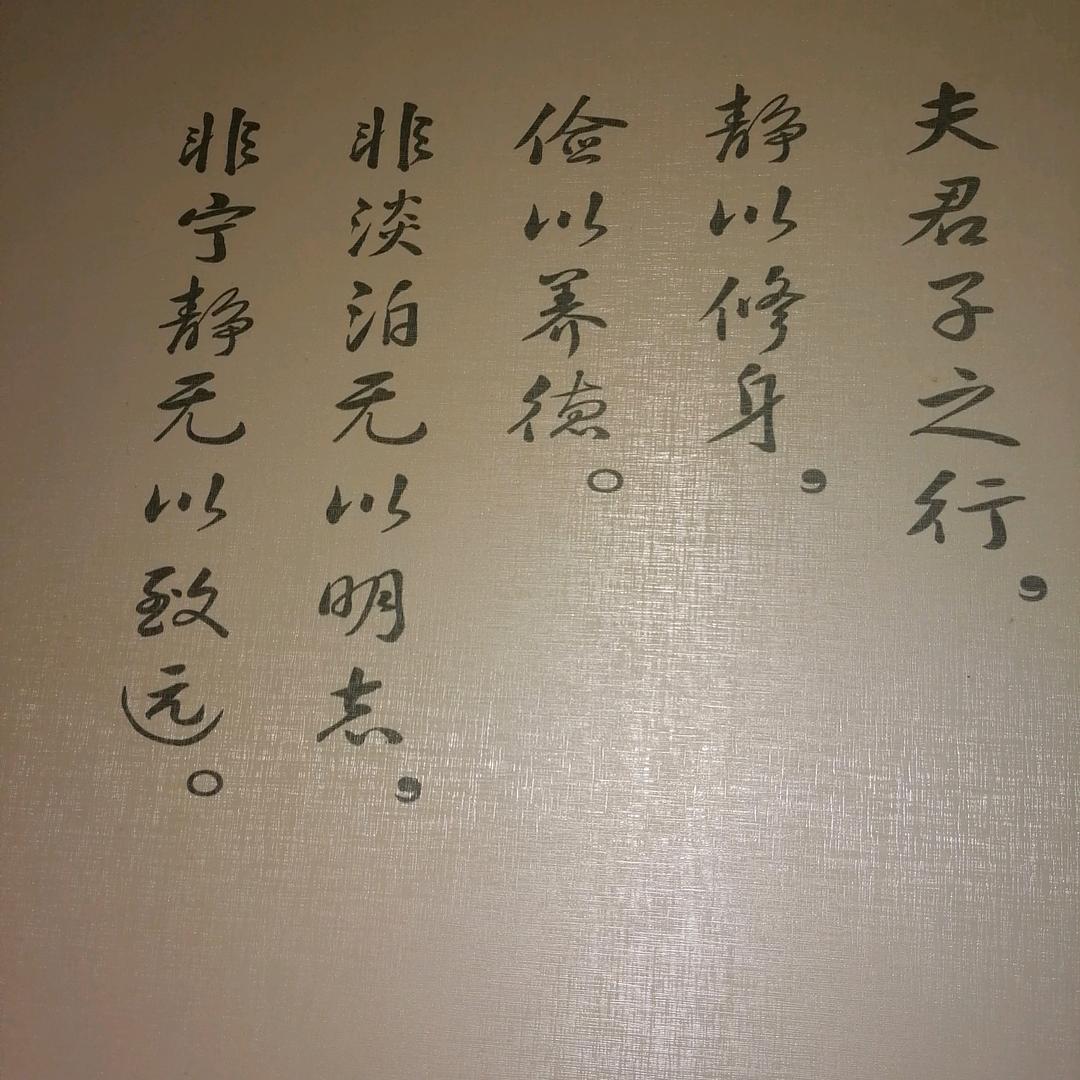 夫君子之行，
静以修身，
俭以养德。
非淡泊无以明志，
非宁静无以致远。